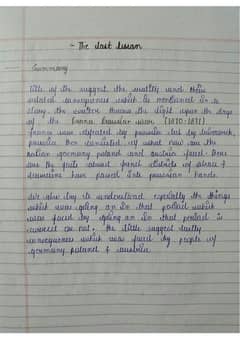 - The Last Lesson
Summary
Title of the suggest the and their
related consequences which is mentioned in a
story. the writer throws the light upon the days
of the Franco Prussian war (1870-1871)
france was defeated by prussia led by bismarck,
prussia then consisted of what now are the
nation germany poland and austria
the french districts of
have passed into prussian hands.
We also try to understand especially the things
which were going on in that period which
were faced by going on in that period is
correct or not. the title suggest
consequences which was faced by people of
germany poland & austria.